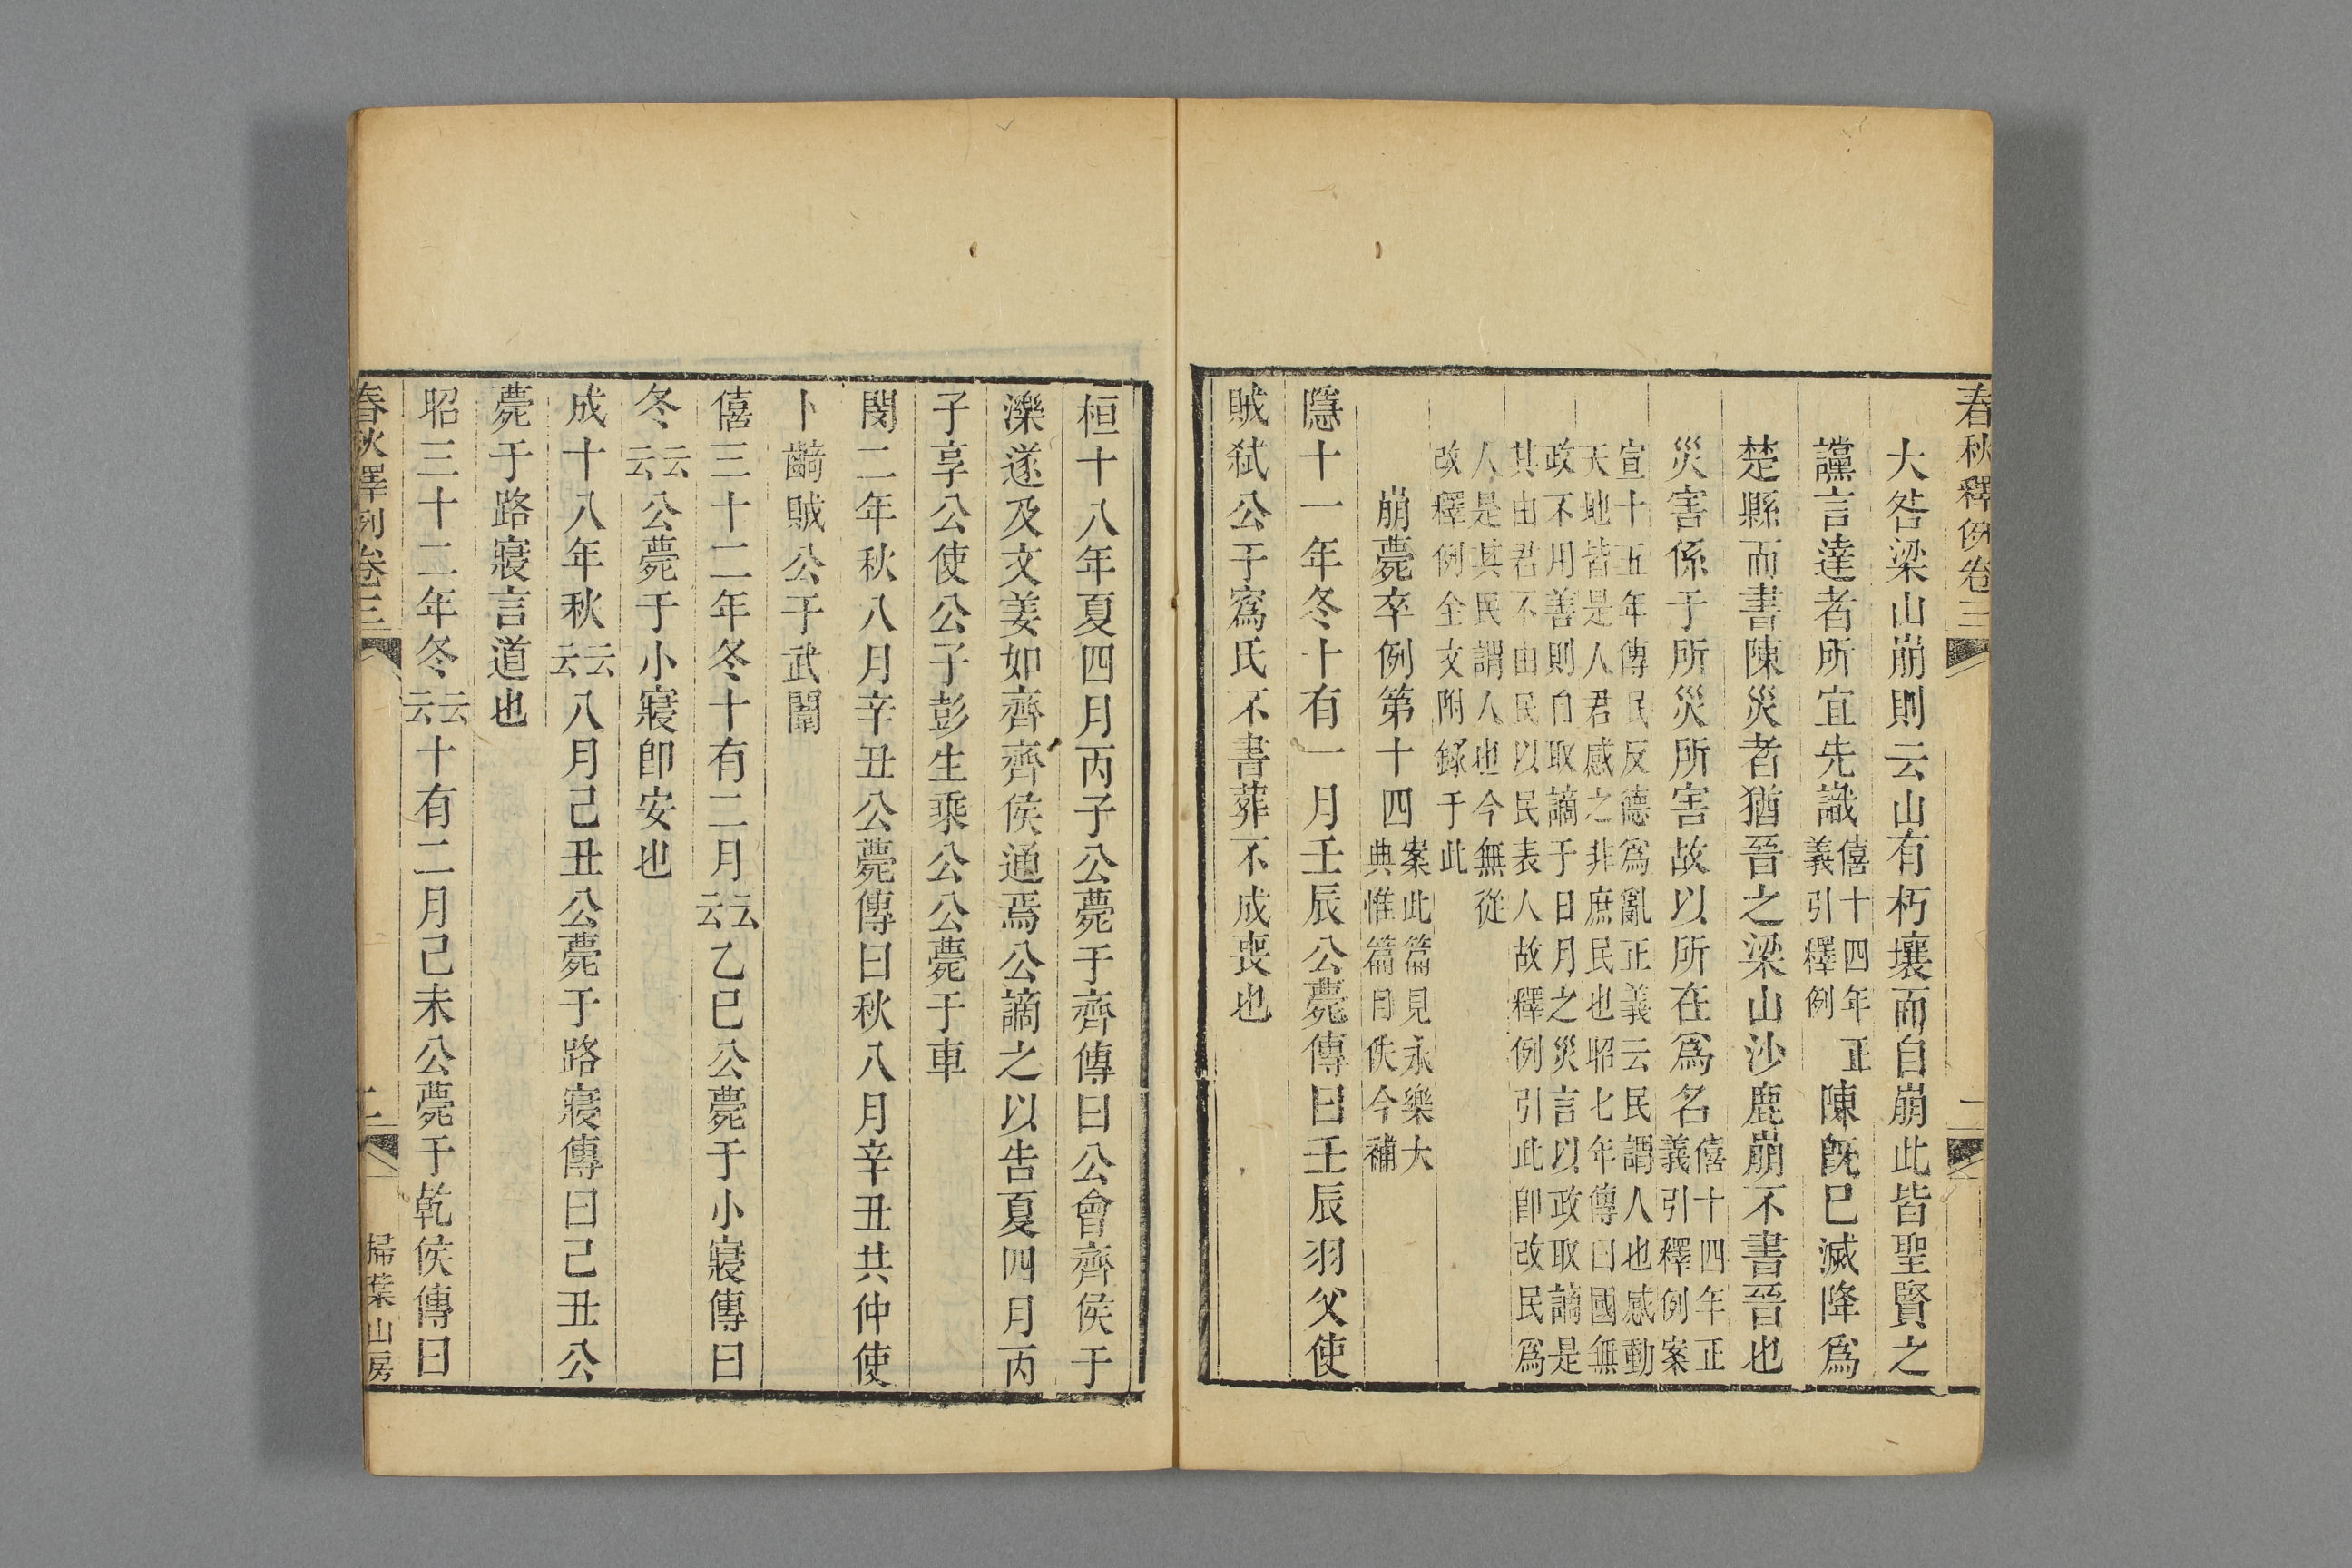 春秋釋例卷三
二
大咎梁山崩則云山有朽壤而自崩此皆聖賢之
讜言達者所宜先識僖十四年正義引釋例陳既已滅降爲
楚縣而書陳災者猶晉之梁山沙鹿崩不書晉也
災害係于所災所害故以所在爲名僖十四年正義引釋例案
宣十五年傳民反德爲亂正義云民謂人也感動
天地皆是人君感之非庶民也昭七年傳曰國無
政不用善則自取謫于日月之災言以政取謫是
其由君不由民以民表人故釋例引此卽改民爲
人是其民謂人也今無從
改釋例全文附錄于此
崩薨卒例第十四案此篇見永樂大典惟篇目佚今補
隱十一年冬十有一月壬辰公薨傳曰壬辰羽父使
賊弑公于寪氏不書葬不成喪也
桓十八年夏四月丙子公薨于齊傳曰公會齊侯于
濼遂及文姜如齊齊侯通焉公謫之以告夏四月丙
子享公使公子彭生乘公公薨于車
閔二年秋八月辛丑公薨傳曰秋八月辛丑共仲使
卜齮賊公于武闈
僖三十二年冬十有二月云云乙巳公薨于小寢傳曰
冬云云公薨于小寢卽安也
成十八年秋云云八月己丑公薨于路寢傳曰己丑公
薨于路寢言道也
昭三十二年冬云云十有二月己未公薨于乾侯傳曰
春秋釋例卷三
二
掃葉山房